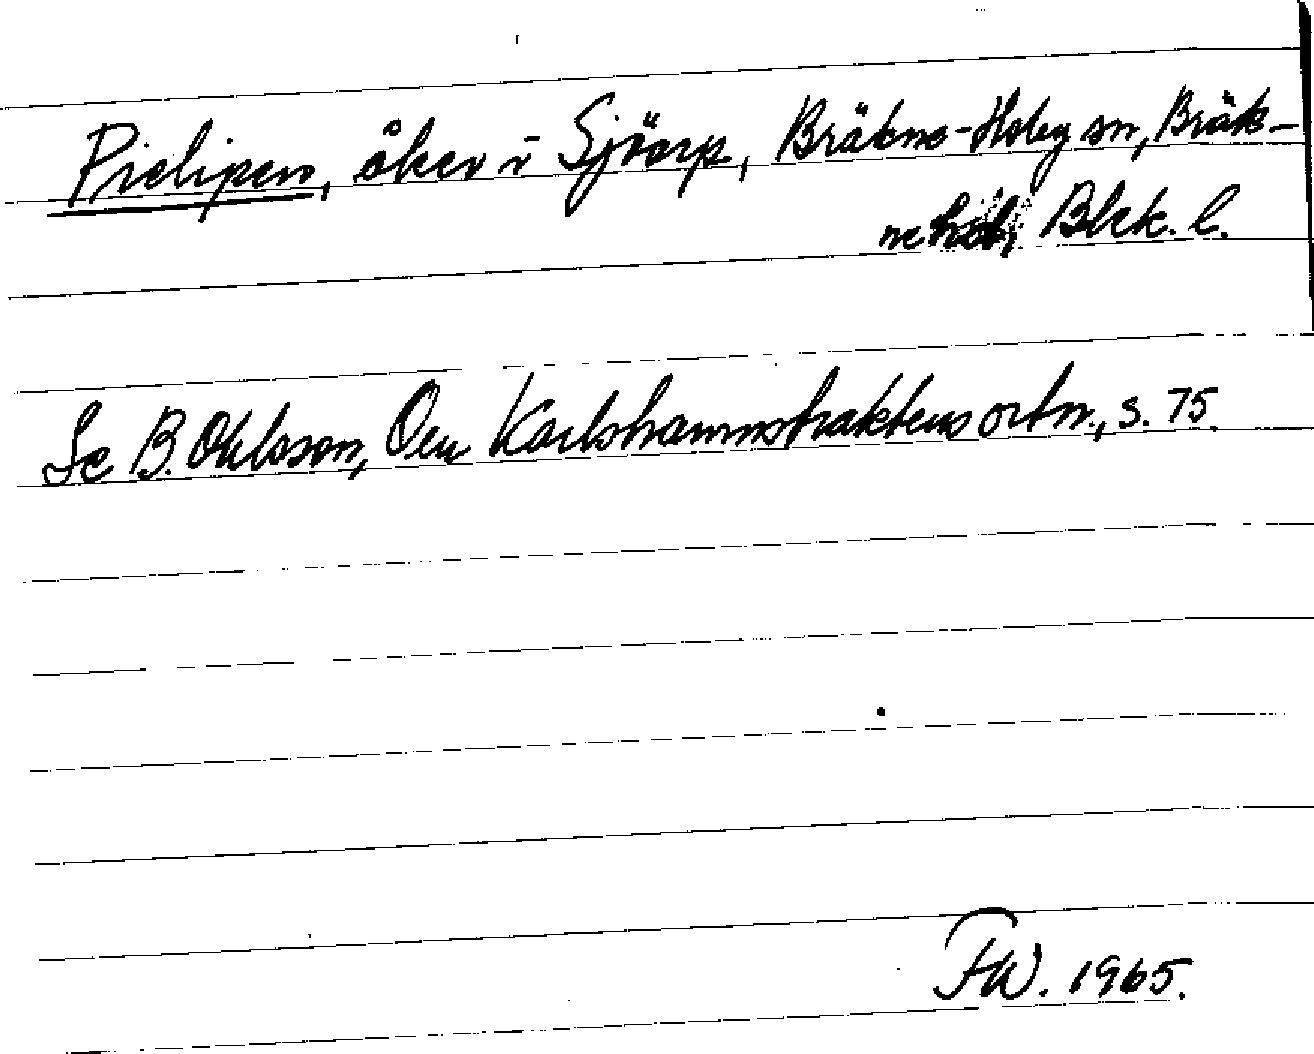 Prelipen, åker i Sjöarp, Bräkne-Hoby sn, Bräk-
ne hd, Blek. l.
Se B. Ohlsson, Om Karlshamnstraktens ortn., s. 75.
FW. 1965.